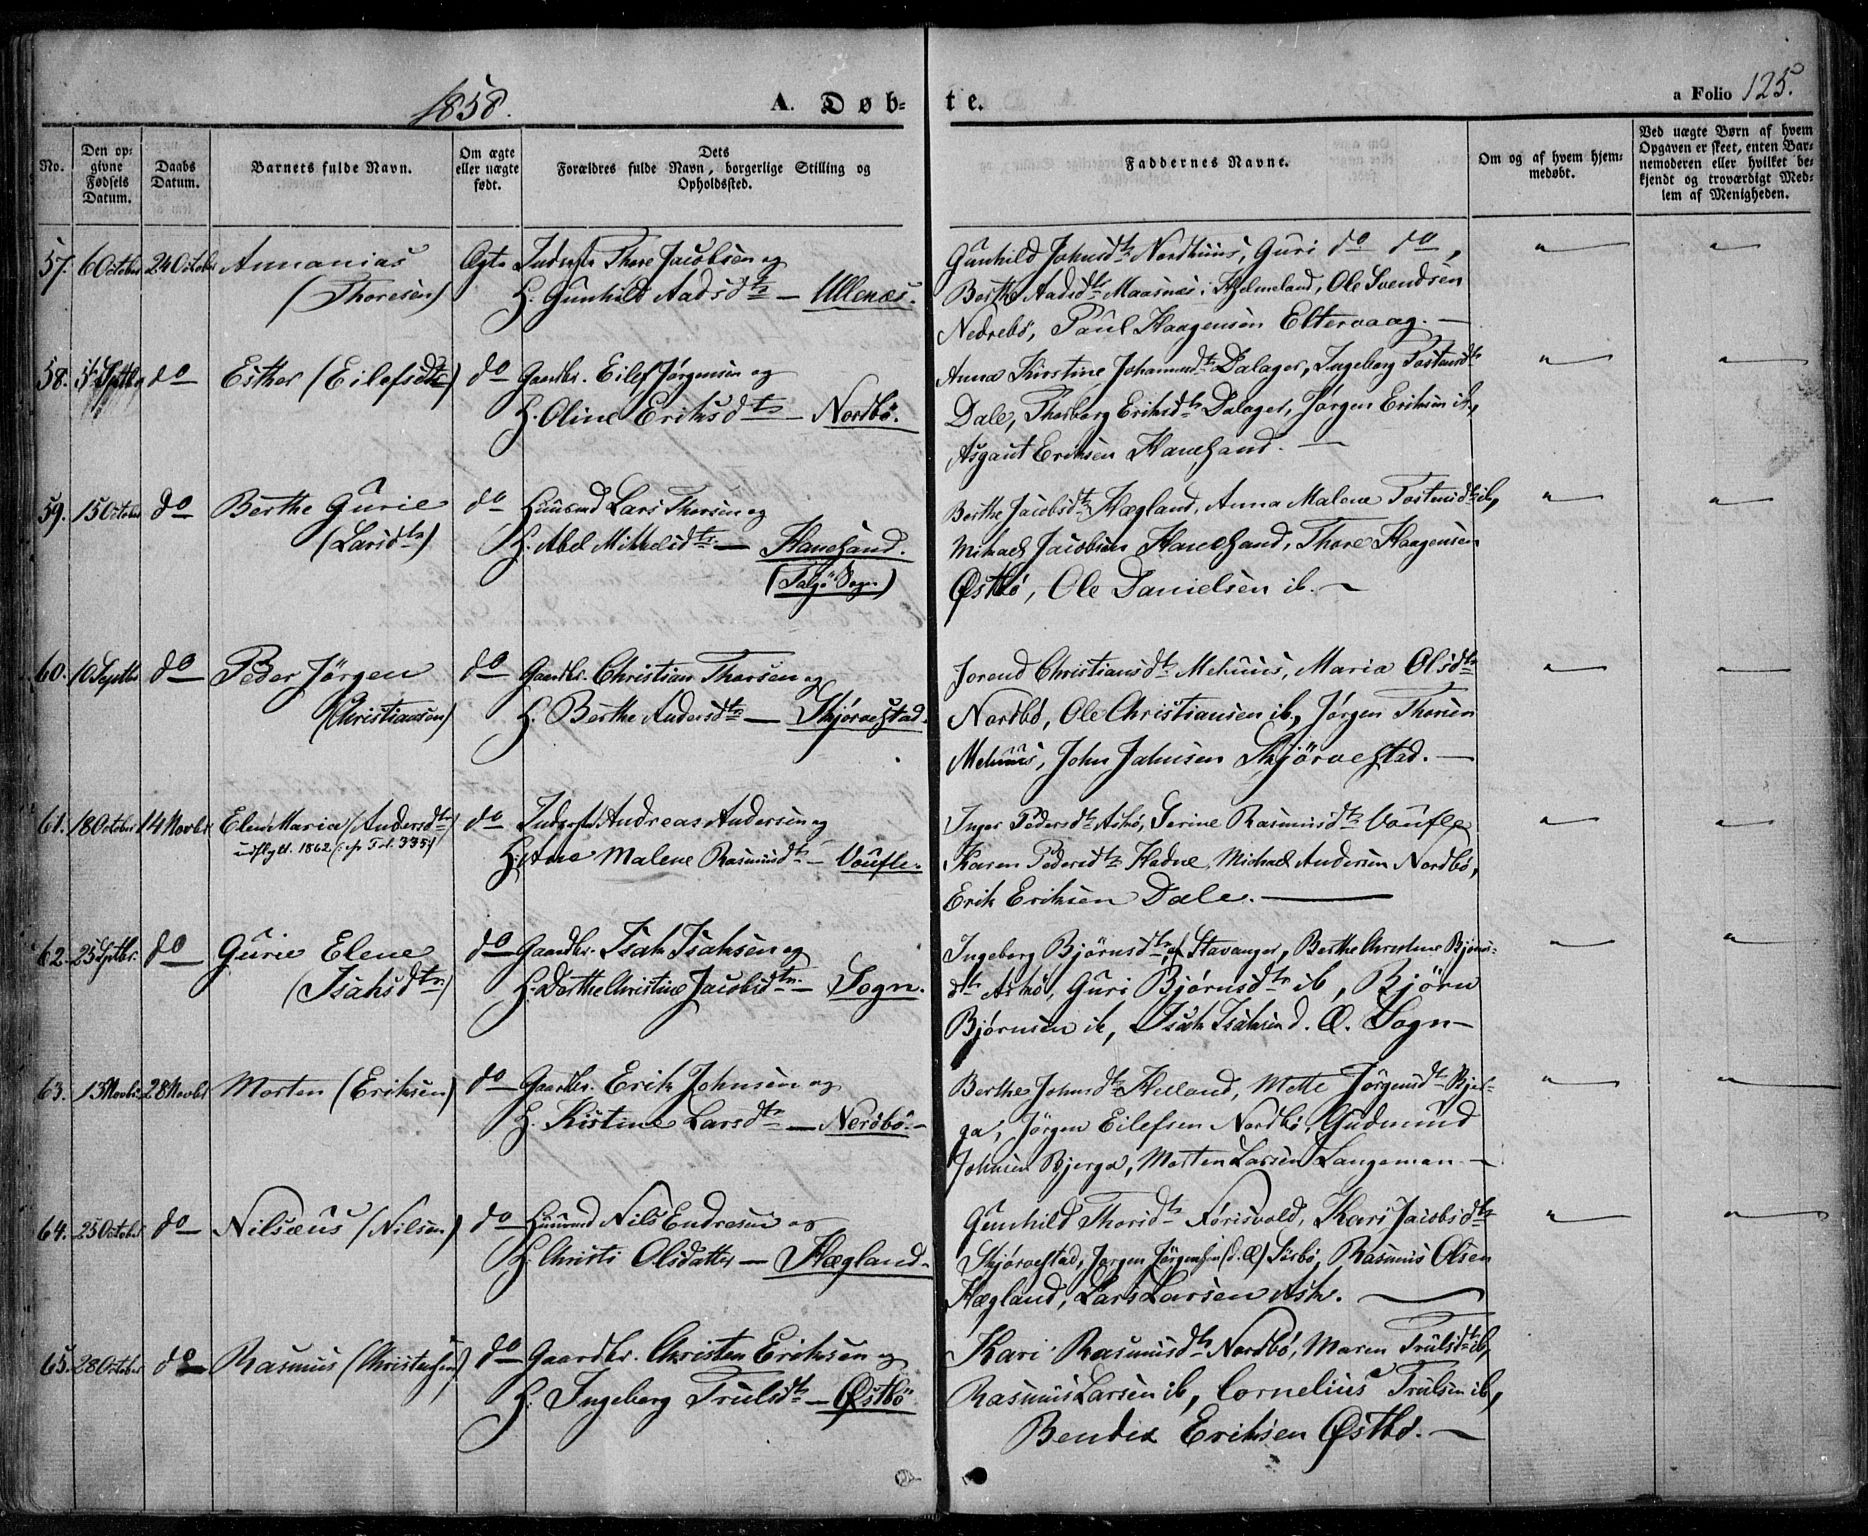 1858.
A. Døb-
te.
a Folio 125.
No.
Den op-
givne
Fødsels
Datum.
Daabs
Datum.
Barnets fulde Navn.
Om ægte
eller uægte
født.
Dets
Forældres fulde Navn, borgerlige Stilling og
Opholdssted.
Faddernes Navne.
Om og af hvem hjem-
medøbt.
Ved uægte Børn af hvem
Opgaven er skeet, enten Bar-
nemoderen eller hvilket be-
kjendt og troværdigt Med-
lem af Menigheden.
57. 6 October 24 October Annanias Ægte Inderste Thore Jacobsen og
(Thoresen) H. Gunhild Aadsdtr — Ullenæs.
Gunhild Johnsdtr Nordhuus, Guri do do,
Berthe Aadsdtr Maasnæs i Hjelmeland, Ole Svendsen
Nedrebø, Paul Haagensen Eltervaag. —
58. 5 Septbr do Esther (Eilefsdtr) do Gaardbr. Eilef Jørgensen og
H. Oline Eriksdtr — Nordbø.
Anna Kirstine Johannesdtr Dalager, Ingeborg Tostensdtr
Dale, Thorborg Eriksdtr Dalager, Jørgen Eriksen ib,
Asgaut Eriksen Hanesand. —
59. 15 October do Berthe Gurie do Huusmd Lars Thorsen og
(Larsdtr) H. Abel Mikkelsdtr. — Hanesand.
(Talgø Sogn)
Berthe Jacobsdtr Hægland, Anna Malene Tostensdtr ib,
Michael Jacobsen Hanesand, Thore Haagensen
Østbø, Ole Danielsen ib. —
60. 10 Septbr do Peder Jørgen do Gaardbr. Christian Thorsen og
(Christiansen) H. Berthe Andersdtr — Skjørvestad.
Jorend Christiansdtr Mehuus, Maria Olsdtr
Nordbø, Ole Christiansen ib, Jørgen Thorsen
Mehuus, John Johnsen Skjørvestad. —
61. 18 October 14 Novbr Elen Maria (Andersdtr) do Inderste Andreas Andersen og
udflytt. 1862 (cfr Fol. 335) H: Ane Malene Rasmusdtr — Voufle.
Inger Pedersdtr Askø, Serine Rasmusdtr Voufle
Karen Pedersdtr Hadne, Michael Andersen Nordbø,
Erik Eriksen Dale. —
62. 25 Septbr. do Gurie Elene do Gaardbr. Isak Isaksen og
(Isaksdtr) H: Dorthe Christine Jacobsdtr. — Sogn.
Ingeborg Bjørnsdtr af Stavanger, Berthe Christine Bjørns-
dtr Askø, Guri Bjørnsdtr ib, Bjørn
Bjørnsen ib, Isak Isaksen d. Æ. Sogn —
63. 13 Novbr 28 Novbr Morten (Eriksen) do Gaardbr. Erik Johnsen og
H. Kistine Larsdtr — Nordbø. —
Berthe Johnsdtr Helland, Mette Jørgensdtr Bjer-
ga, Jørgen Eilefsen Nordbø, Gudmund
Johnsen Bjerga, Morten Larsen Langeman. —
64. 25 October do Nilsæus (Nilsen) do Huusmd Nils Endresen og
H. Christi Olsdatter — Hægland.
Gunhild Thorsdtr Førisvold, Kari Jacobsdtr
Skjørvestad, Jørgen Jørgensen (d. Æ) Sørbø, Rasmus Olsen
Hægland, Lars Larsen Ask. —
65. 28 October do Rasmus (Christensen) do Gaardbr. Christen Eriksen og
H. Ingeborg Trulsdtr — Østbø
Kari Rasmusdtr Nordbø, Maren Trulsdtr ib,
Rasmus Larsen ib, Cornelius Trulsen ib,
Bendix Eriksen Østbø. —